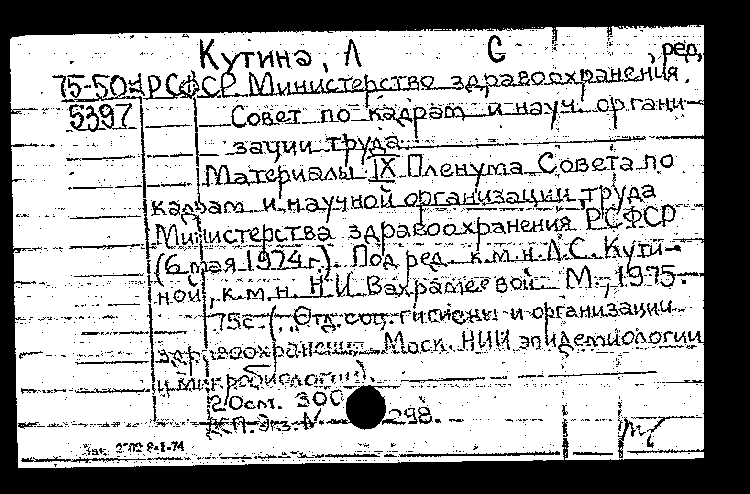 Кутина, Л С , ред,
75-50 РСФСР Министерство здравоохранения.
5397 Совет по кадрам и науч. органи-
зации труда.
Материалы IX Пленума Совета по
кадрам и научной организации труда
Министерства здравоохранения РСФСР
(6 мая 1974г.). Под ред. к.м.н. Л.С. Кути-
ной, к.м.н. Н.И. Вахрамеевой. М., 1975.
75с. (Отд. соц. гигиены и организации
здравоохранения. Моск. НИИ эпидемиологии
и микробиологии).
20см. 300
298.
8-I-74